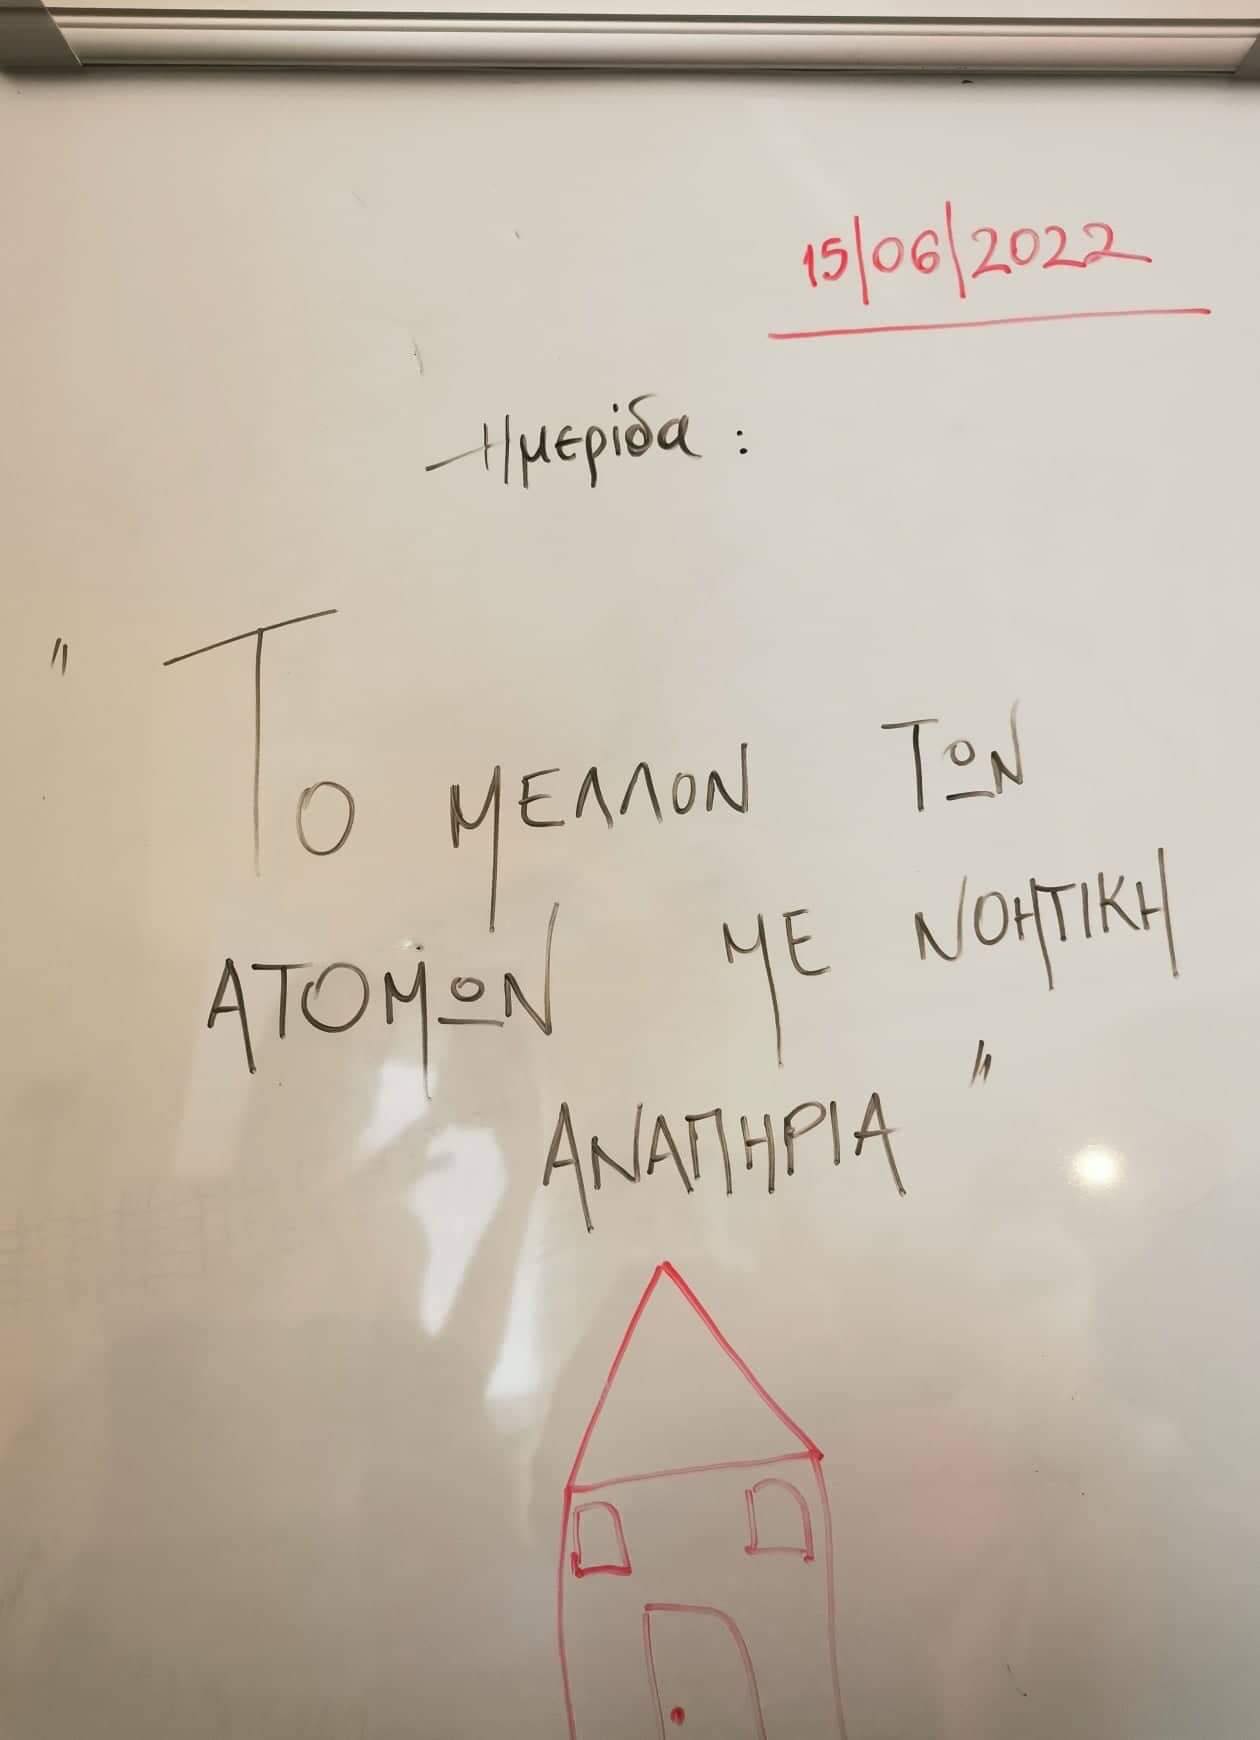 15/06/2022
Ημερίδα :
" ΤΟ ΜΕΛΛΟΝ ΤΩΝ
ΑΤΟΜΩΝ ΜΕ ΝΟΗΤΙΚΗ
ΑΝΑΠΗΡΙΑ "